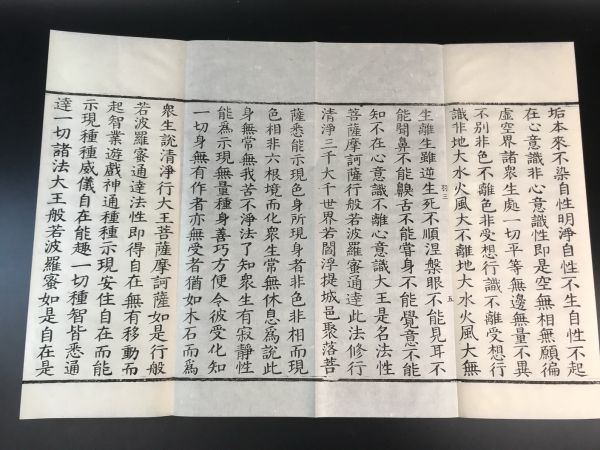 垢本來不染自性明淨自性不生自性不起
在心意識非心意識性即是空無相無願徧
虛空界諸衆生處一切平等無邊無量不異
不別非色不離色非受想行識不離受想行
識非地大水火風大不離地大水火風大無
生離生雖逆生死不順涅槃眼不能見耳不
能聞鼻不能齅舌不能嘗身不能覺意不能
知不在心意識不離心意識大王是名法性
菩薩摩訶薩行般若波羅蜜通達此法修行
清淨三千大千世界若閻浮提城邑聚落菩
羽三
五
薩悉能示現色身所現身者非色非相而現
色相非六根境而化衆生常無休息爲說此
身無常無我苦不淨法了知衆生有寂靜性
能爲示現無量種身善巧方便令彼受化知
一切身無有作者亦無受者猶如木石而爲
衆生說清淨行大王菩薩摩訶薩如是行般
若波羅蜜通達法性即得自在無有移動而
起智業遊戲神通種種示現安住自在而能
示現種種威儀自在能趣一切種智皆悉通
達一切諸法大王般若波羅蜜如是自在是